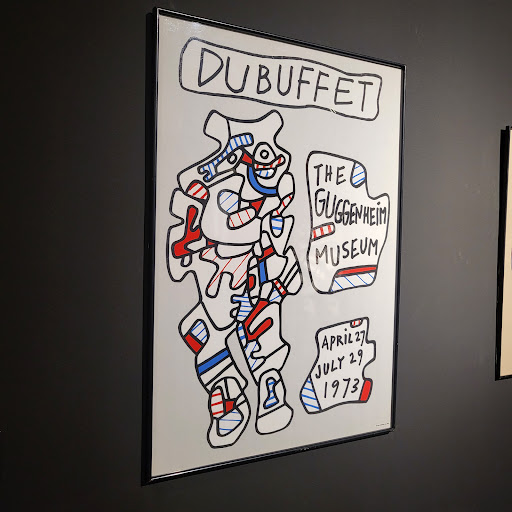 DUBUFFET
THE
GUGGENHEIM
MUSEUM
APRIL 27
JULY 29
1973